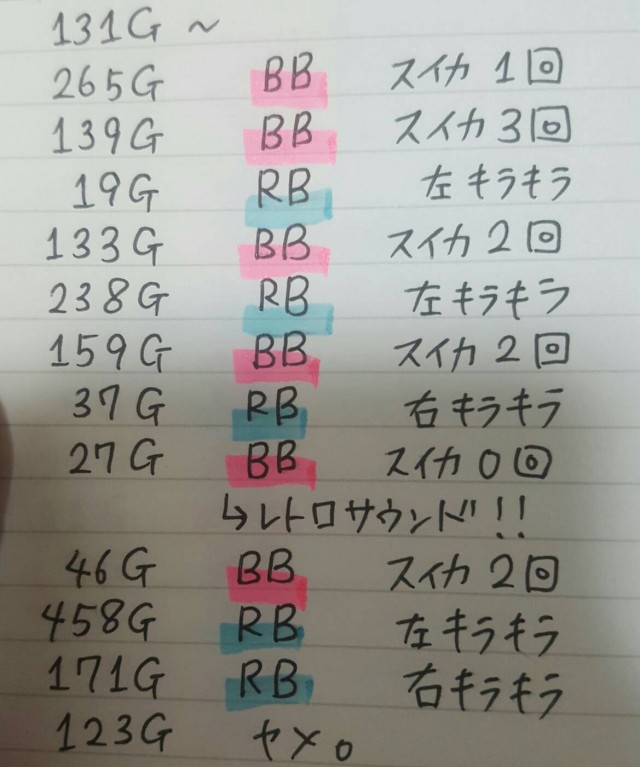 131G ~
265G BB スイカ 1回
139G BB スイカ 3回
19G RB 左キラキラ
133G BB スイカ 2回
238G RB 左キラキラ
159G BB スイカ 2回
37G RB 右キラキラ
27G BB スイカ 0回
↳レトロサウンド!!
46G BB スイカ 2回
458G RB 左キラキラ
171G RB 右キラキラ
123G ヤメ。